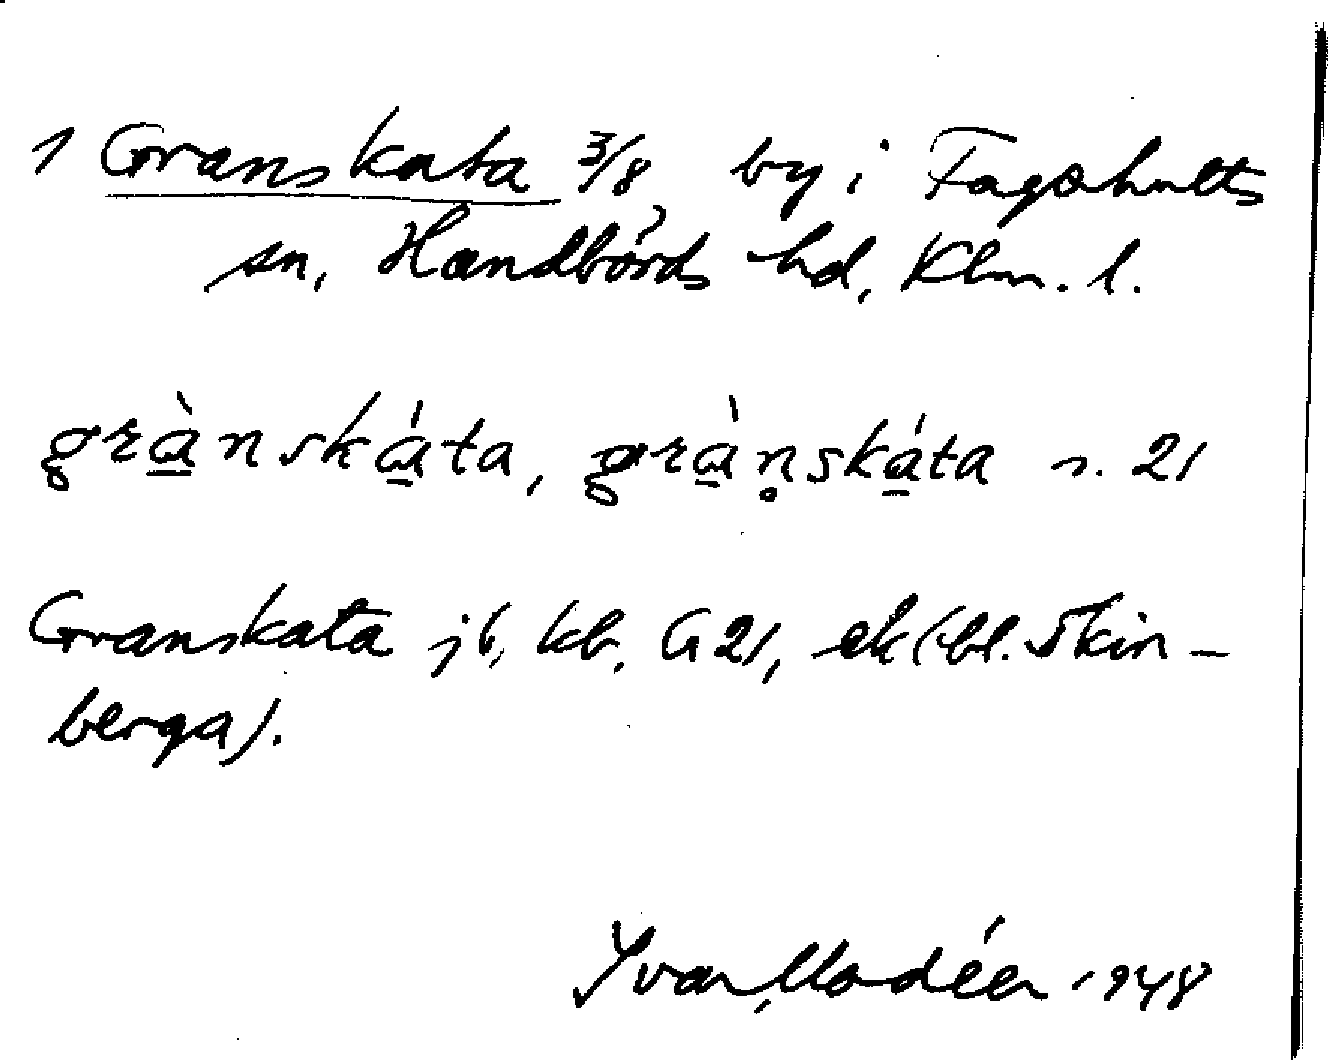 1 Granskata 3/8, by i Fagerhults
sn, Handbörds hd, Klm. l.
grànskáta, gràn̥skáta s. 21
Granskata jb, kb, G21, ek (bl. Skin-
berga).
Ivar Modéer 1948